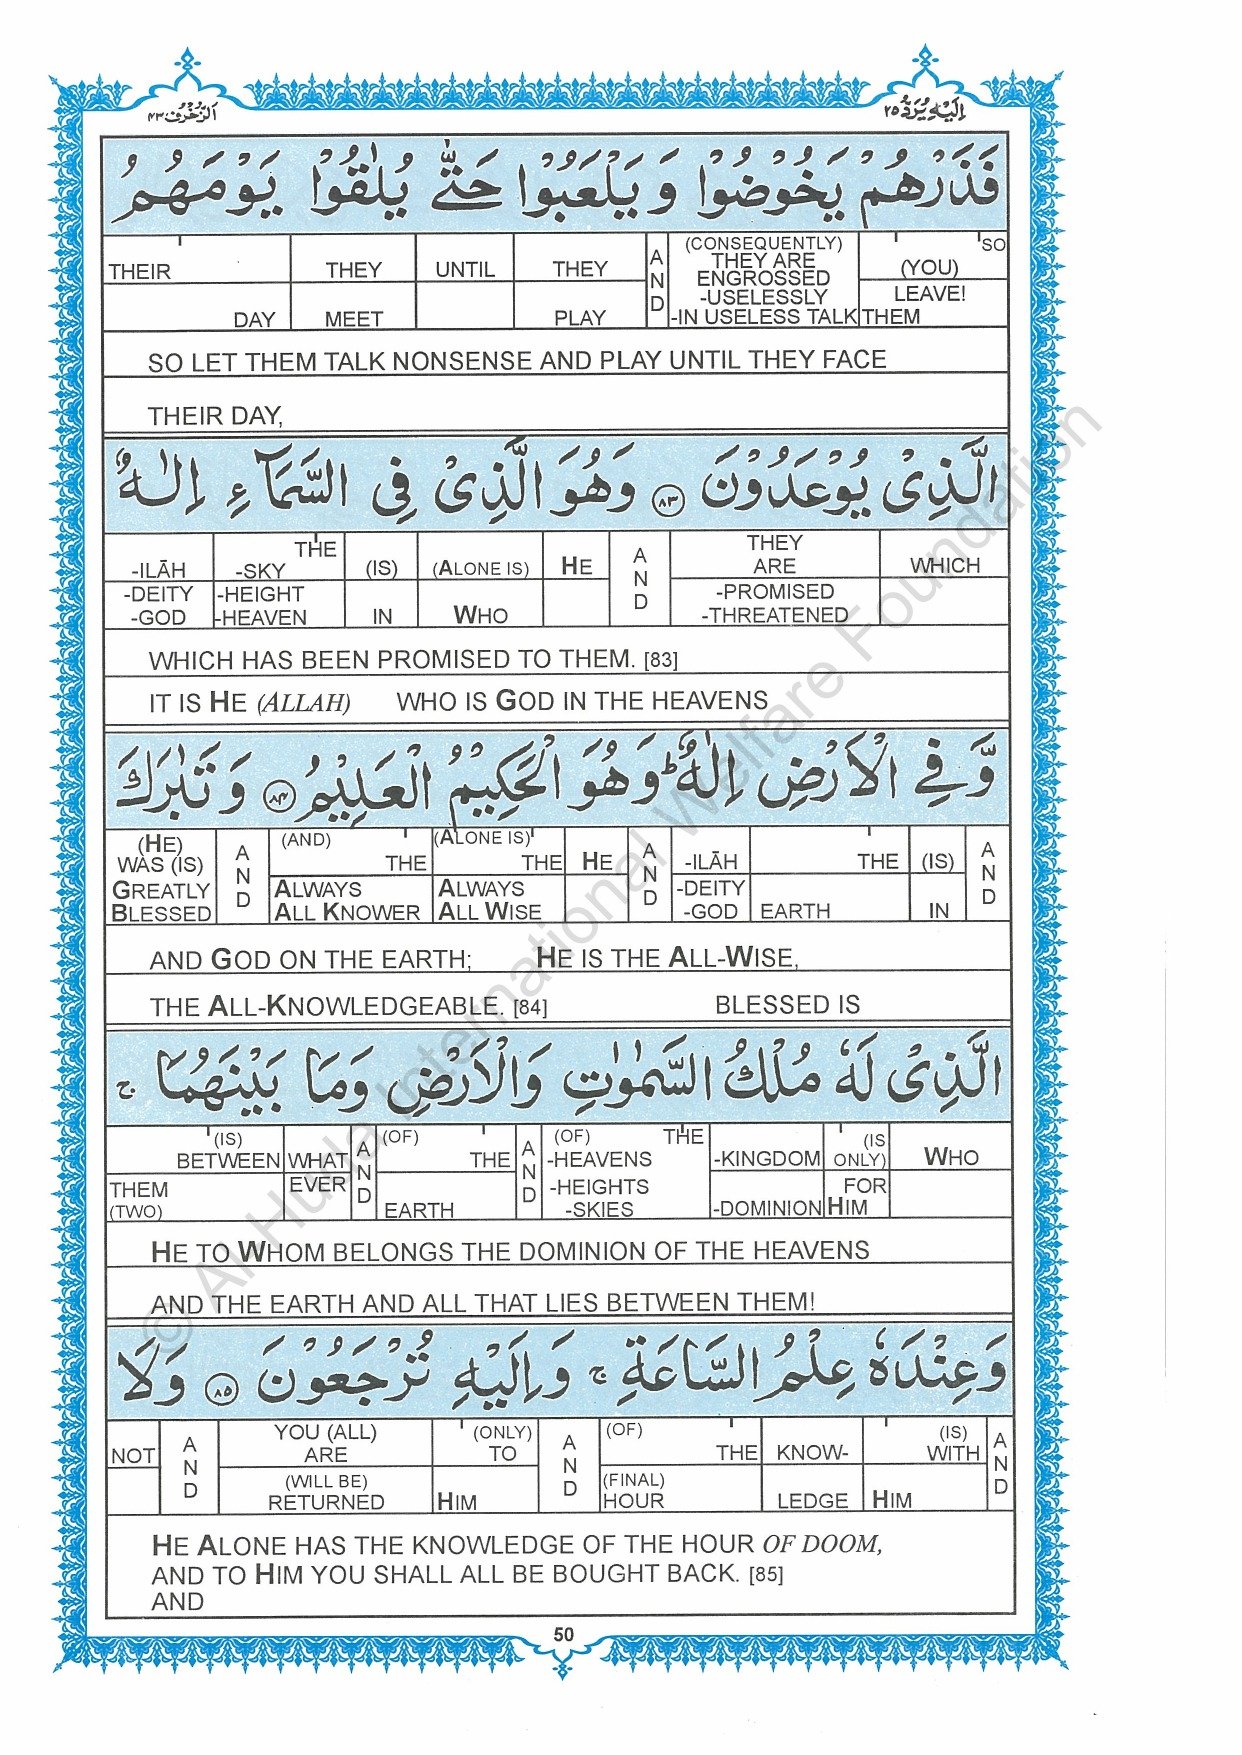 الزخرف ٤٣
اليه يرد ٢٥
فَذَرْهُمْ يَخُوْضُوْا وَيَلْعَبُوْا حَتّٰى يُلٰقُوْا يَوْمَهُمُ
SO (YOU) LEAVE! THEM (CONSEQUENTLY) THEY ARE ENGROSSED -USELESSLY -IN USELESS TALK AND THEY PLAY UNTIL THEY MEET THEIR DAY
SO LET THEM TALK NONSENSE AND PLAY UNTIL THEY FACE
THEIR DAY,
الَّذِىْ يُوْعَدُوْنَ ﴿٨٣﴾ وَهُوَ الَّذِىْ فِى السَّمَآءِ اِلٰهٌ
WHICH THEY ARE -PROMISED -THREATENED AND HE (ALONE IS) WHO (IS) IN THE -SKY -HEIGHT -HEAVEN -ILĀH -DEITY -GOD
WHICH HAS BEEN PROMISED TO THEM. [83]
IT IS HE (ALLAH) WHO IS GOD IN THE HEAVENS
وَّفِى الْاَرْضِ اِلٰهٌ ؕ وَهُوَ الْحَكِيْمُ الْعَلِيْمُ ﴿٨٤﴾ وَتَبٰرَكَ
AND (IS) IN THE EARTH -ILĀH -DEITY -GOD AND HE (ALONE IS) THE ALWAYS ALL WISE (AND) THE ALWAYS ALL KNOWER AND (HE) WAS (IS) GREATLY BLESSED
AND GOD ON THE EARTH; HE IS THE ALL-WISE,
THE ALL-KNOWLEDGEABLE. [84] BLESSED IS
الَّذِىْ لَهٗ مُلْكُ السَّمٰوٰتِ وَالْاَرْضِ وَمَا بَيْنَهُمَا ۚ
WHO (IS ONLY) FOR HIM -KINGDOM -DOMINION (OF) THE -HEAVENS -HEIGHTS -SKIES AND (OF) THE EARTH AND WHAT EVER (IS) BETWEEN THEM (TWO)
HE TO WHOM BELONGS THE DOMINION OF THE HEAVENS
AND THE EARTH AND ALL THAT LIES BETWEEN THEM!
وَعِنْدَهٗ عِلْمُ السَّاعَةِ ۚ وَاِلَيْهِ تُرْجَعُوْنَ ﴿٨٥﴾ وَلَا
AND (IS) WITH HIM KNOW-LEDGE (OF) THE (FINAL) HOUR AND (ONLY) TO HIM YOU (ALL) ARE (WILL BE) RETURNED AND NOT
HE ALONE HAS THE KNOWLEDGE OF THE HOUR OF DOOM,
AND TO HIM YOU SHALL ALL BE BOUGHT BACK. [85]
AND
50
© Al Huda International Welfare Foundation